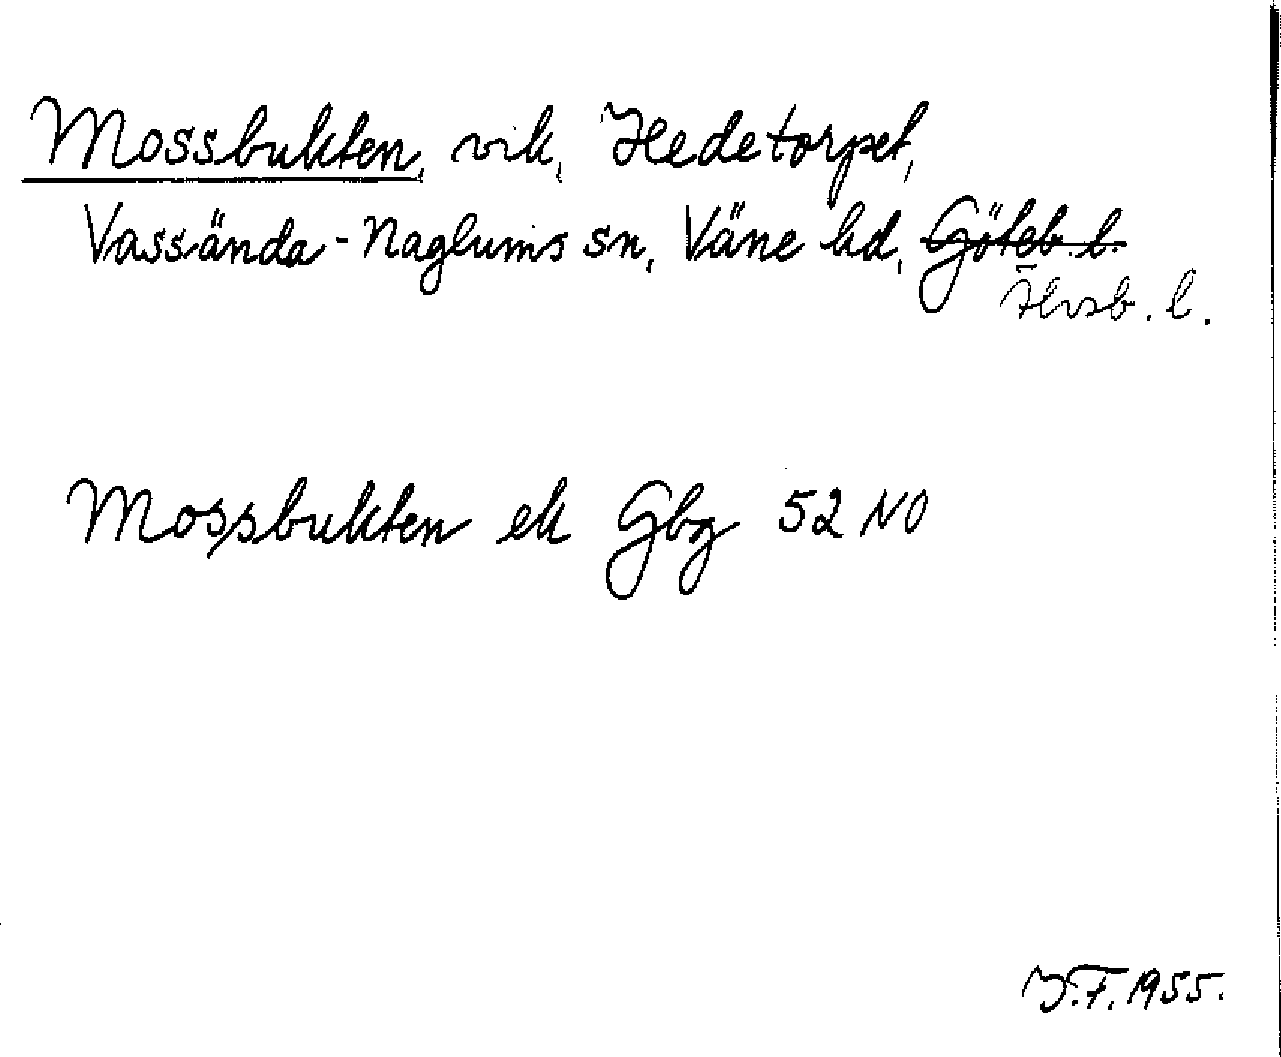 Mossbukten, vik, Hedetorpet,
Vassända-Naglums sn, Väne hd, Göteb. l.
Älvsb. l.
Mossbukten ek Gbg 52 NO
I.F. 1955.